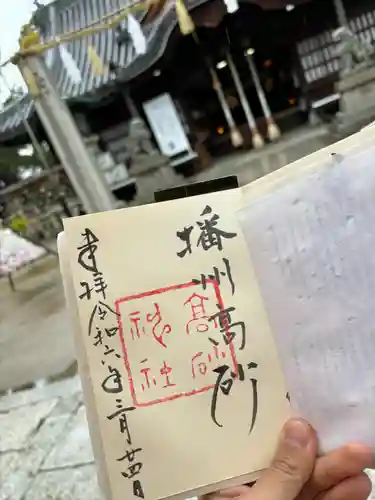 播州高砂
高砂
神社
奉拝 令和六年三月廿四日